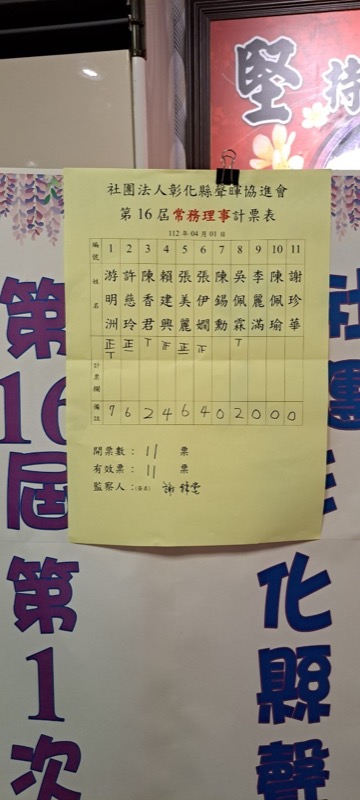 堅持
社團法人彰化縣聲暉協進會
第16屆常務理事計票表
112年04月01日
編號 1 2 3 4 5 6 7 8 9 10 11
姓名 游明洲 許慈玲 陳香君 賴建興 張美麗 張伊嫺 陳錫勳 吳佩霖 李麗滿 陳佩瑜 謝珍華
計票欄 正丅 正一 丅 正 正一 正 丅
備註 7 6 2 4 6 4 0 2 0 0 0
開票數：11 票
有效票：11 票
監察人：(簽名) 謝
第16屆第1次
社團
化縣聲